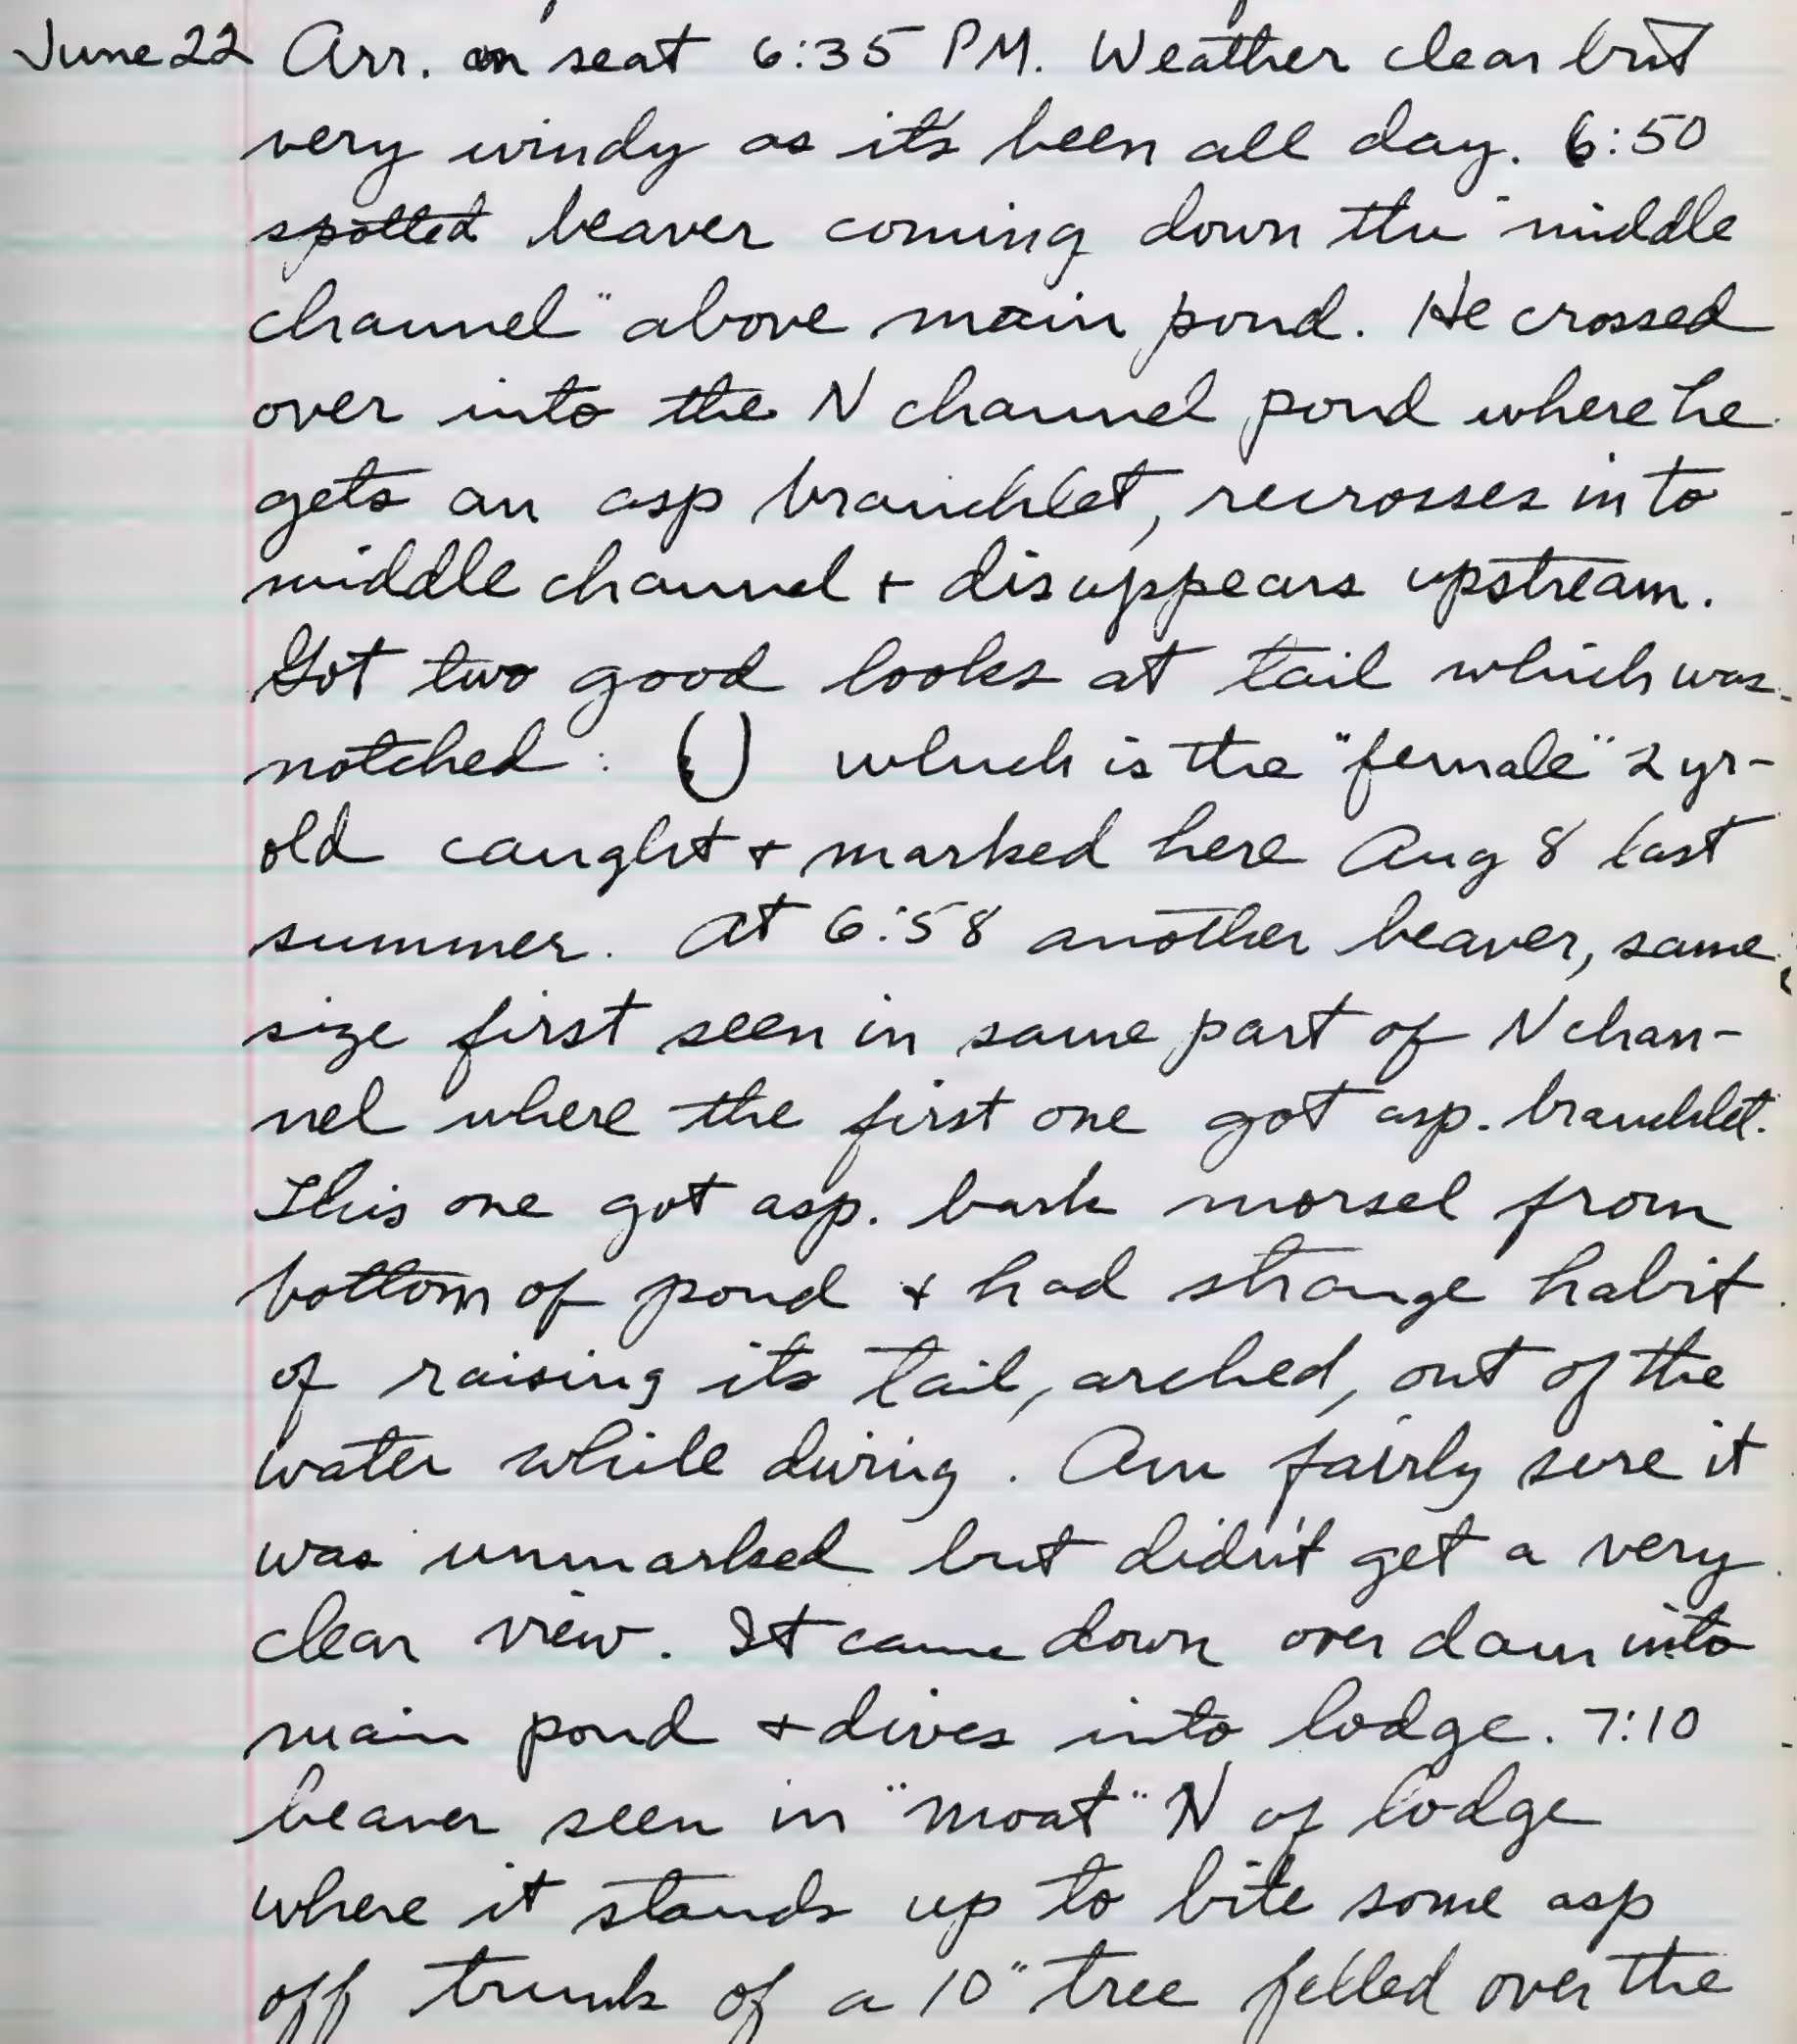 June 22 Arr. on seat 6:35 PM. Weather clear but
very windy as it's been all day. 6:50
spotted beaver coming down the "middle
channel" above main pond. He crossed
over into the N channel pond where he
gets an asp branchlet, recrosses into
middle channel + disappears upstream.
Got two good looks at tail which was
notched : which is the "female" 2 yr-
old caught + marked here Aug 8 last
summer. At 6:58 another beaver, same
size first seen in same part of N chan-
nel where the first one got asp. branchlet.
This one got asp. bark morsel from
bottom of pond + had strange habit
of raising its tail, arched, out of the
water while diving. Am fairly sure it
was unmarked but didn't get a very
clear view. It came down over dam into
main pond + dives into lodge. 7:10
beaver seen in "moat" N of lodge
where it stands up to bite some asp
off trunk of a 10" tree felled over the